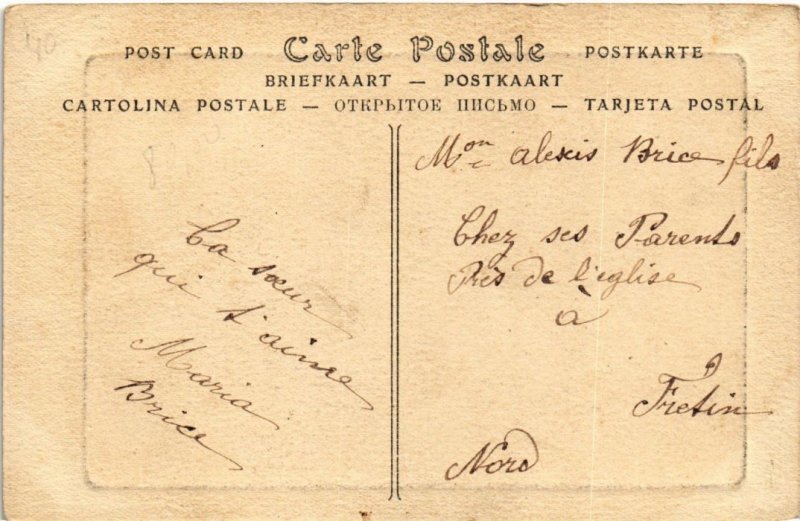 40
POST CARD Carte Postale POSTKARTE
BRIEFKAART — POSTKAART
CARTOLINA POSTALE — ОТКРЫТОЕ ПИСЬМО — TARJETA POSTAL
8
Ta sœur
qui t'aime
Maria
Brice
Mon alexis Brice fils
Chez ses Parents
Près de l'eglise
à
Fretin
Nord